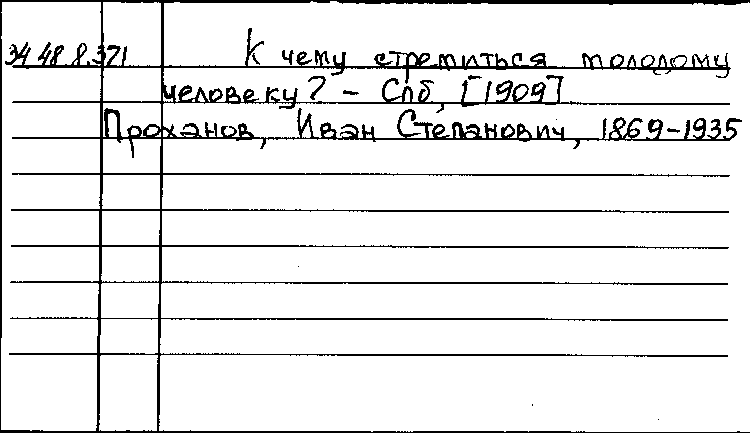 34 48 8.371 К чему стремиться молодому
человеку? - Спб, [1909]
Проханов, Иван Степанович, 1869-1935